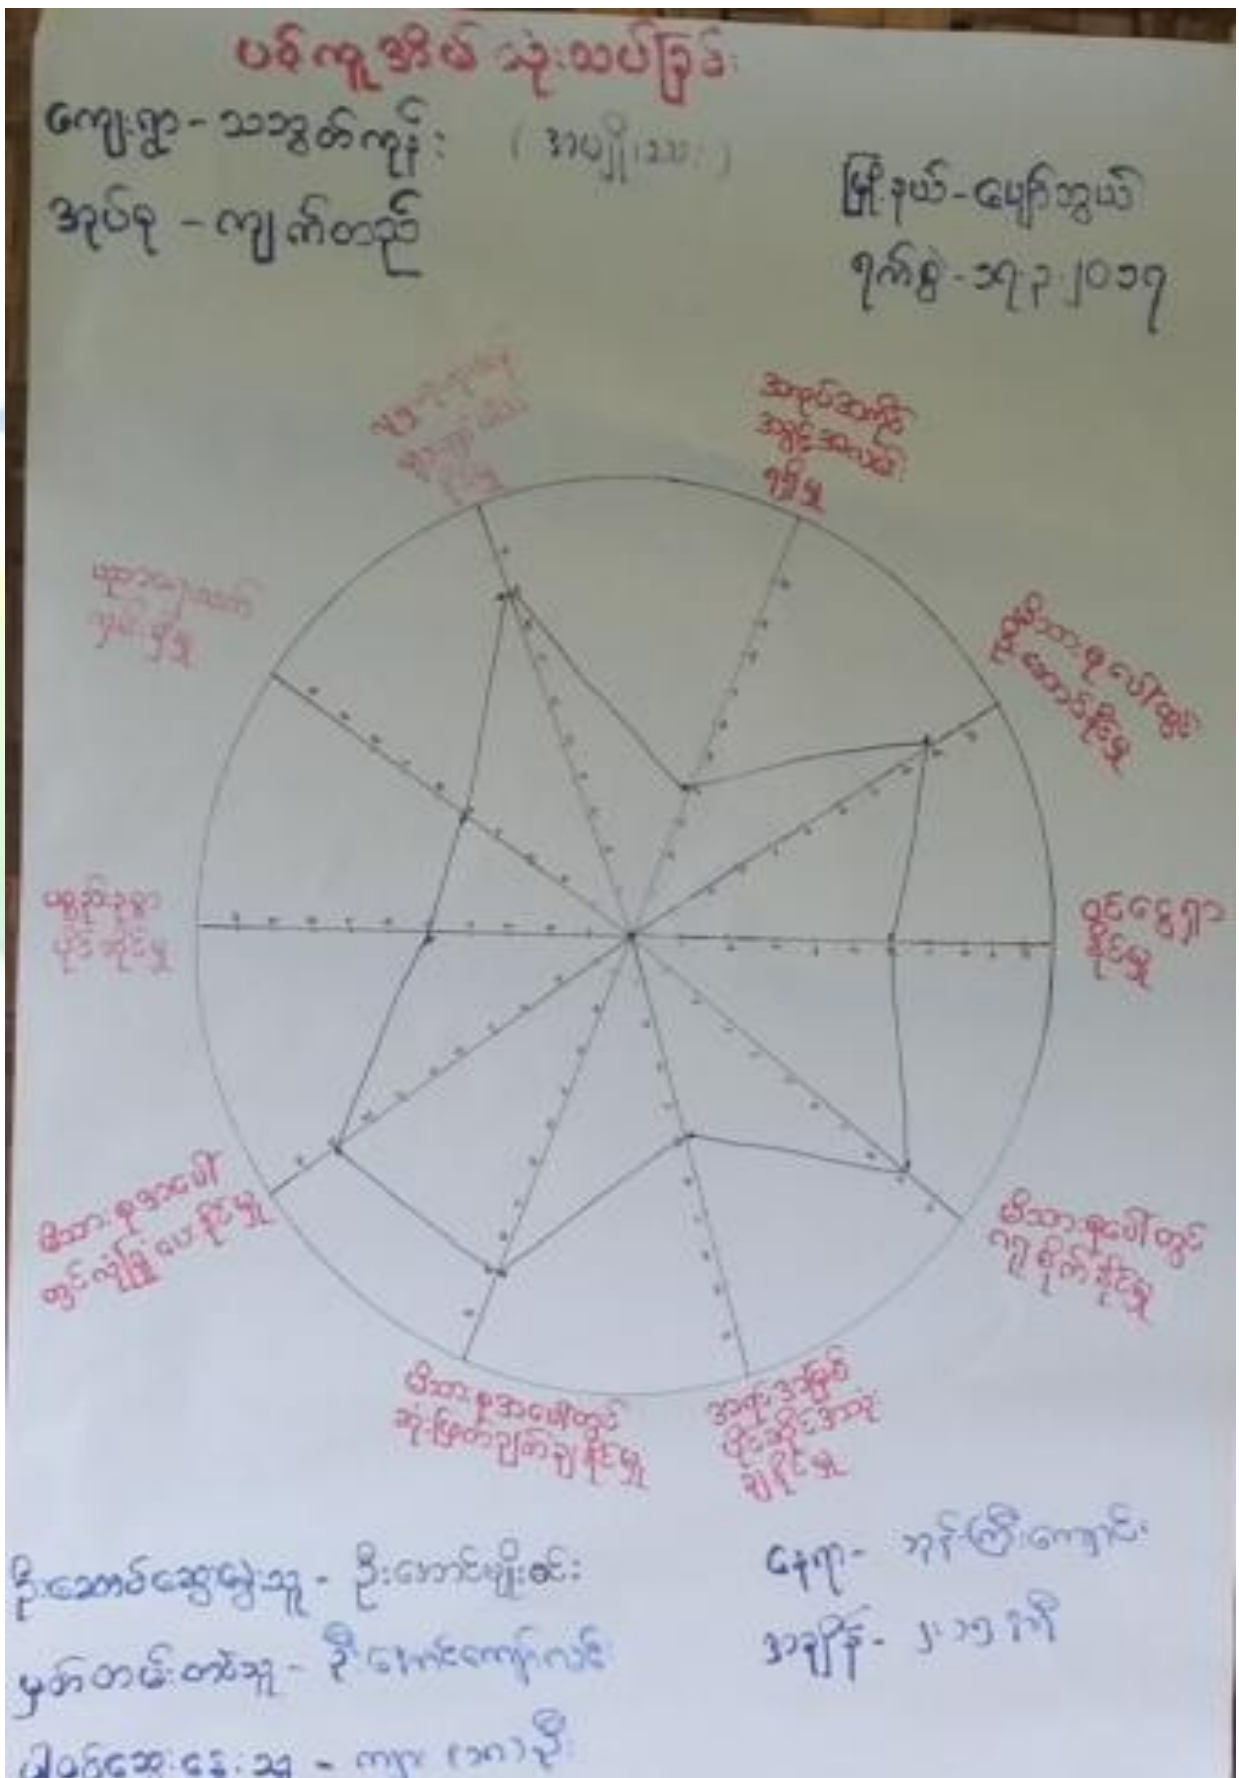 ပင့်ကူအိမ် သုံးသပ်ခြင်း
ကျေးရွာ - သဘွတ်ကုန်း (အမျိုးသား)
အုပ်စု - ကျက်တည်
မြို့နယ် - ပျော်ဘွယ်
ရက်စွဲ - ၁၇.၃.၂၀၁၇
အလုပ်အကိုင်
အခွင့်အလမ်း
ရရှိမှု
မိသားစုပေါ်တွင်
ဦးဆောင်နိုင်မှု
ဝင်ငွေရှာ
နိုင်မှု
မိသားစုပေါ်တွင်
ဂရုစိုက်နိုင်မှု
အရင်းအမြစ်
ပိုင်ဆိုင်အသုံး
ချနိုင်မှု
မိသားစုအပေါ်တွင်
ဆုံးဖြတ်ချက်ချနိုင်မှု
မိသားစုအပေါ်
တွင်လုံခြုံပေးနိုင်မှု
ပစ္စည်းဥစ္စာ
ပိုင်ဆိုင်မှု
ဦးဆောင်ဆွေးနွေးသူ - ဦးအောင်မျိုးဝင်း
မှတ်တမ်းတင်သူ - ဦးအောင်ကျော်လင်း
ပါဝင်ဆွေးနွေးသူ - ကျား (၁၈) ဦး
နေရာ - ဘုန်းကြီးကျောင်း
အချိန် - ၂:၁၅ နာရီ